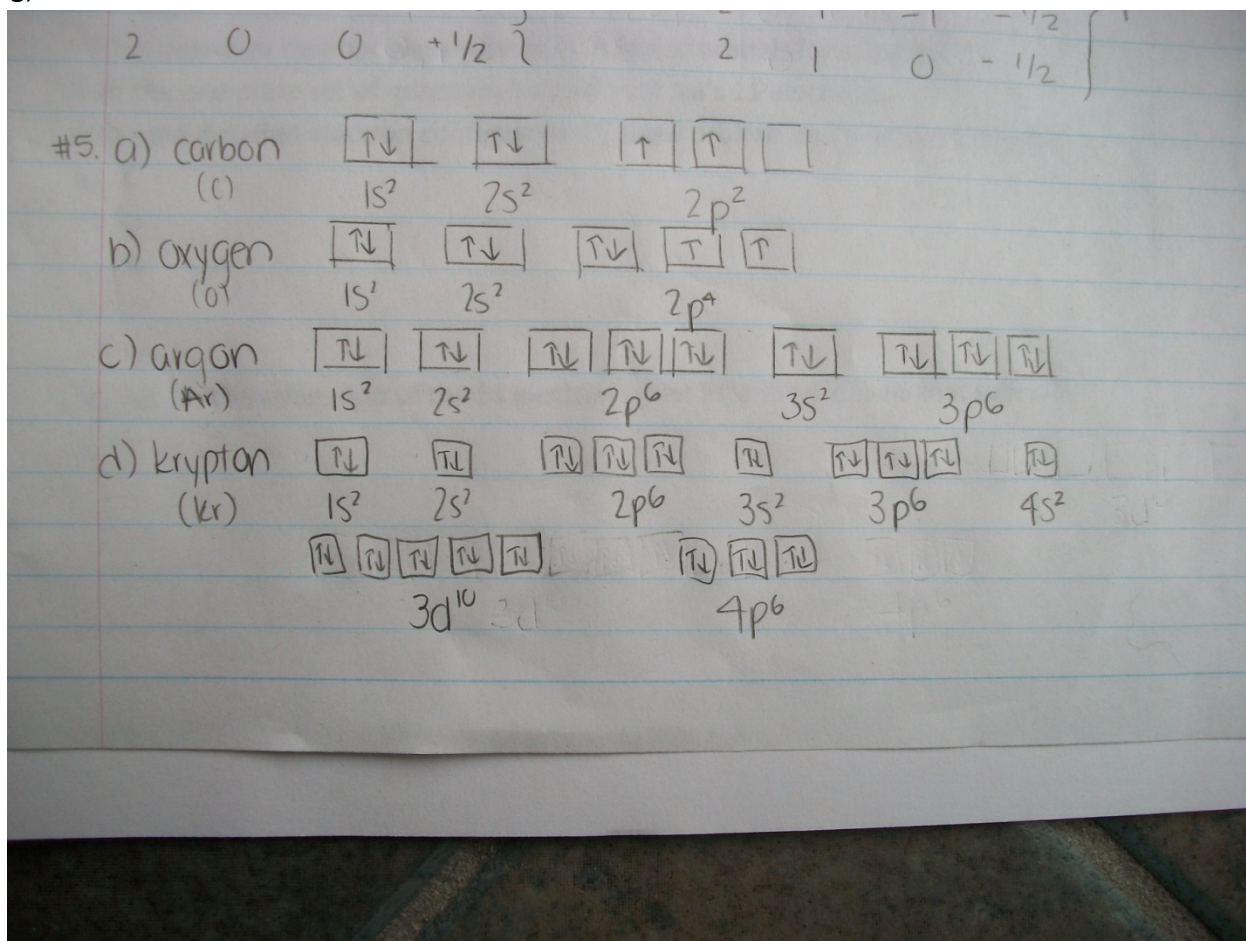 -1 -1/2
2 0 0 +1/2 2 1 0 -1/2
#5. a) carbon ↑↓ ↑↓ ↑ ↑
(C) 1s² 2s² 2p²
b) oxygen ↑↓ ↑↓ ↑↓ ↑ ↑
(O) 1s² 2s² 2p⁴
c) argon ↑↓ ↑↓ ↑↓ ↑↓ ↑↓ ↑↓ ↑↓ ↑↓ ↑↓
(Ar) 1s² 2s² 2p⁶ 3s² 3p⁶
d) krypton ↑↓ ↑↓ ↑↓ ↑↓ ↑↓ ↑↓ ↑↓ ↑↓ ↑↓ ↑↓
(Kr) 1s² 2s² 2p⁶ 3s² 3p⁶ 4s²
↑↓ ↑↓ ↑↓ ↑↓ ↑↓ ↑↓ ↑↓ ↑↓
3d¹⁰ 4p⁶